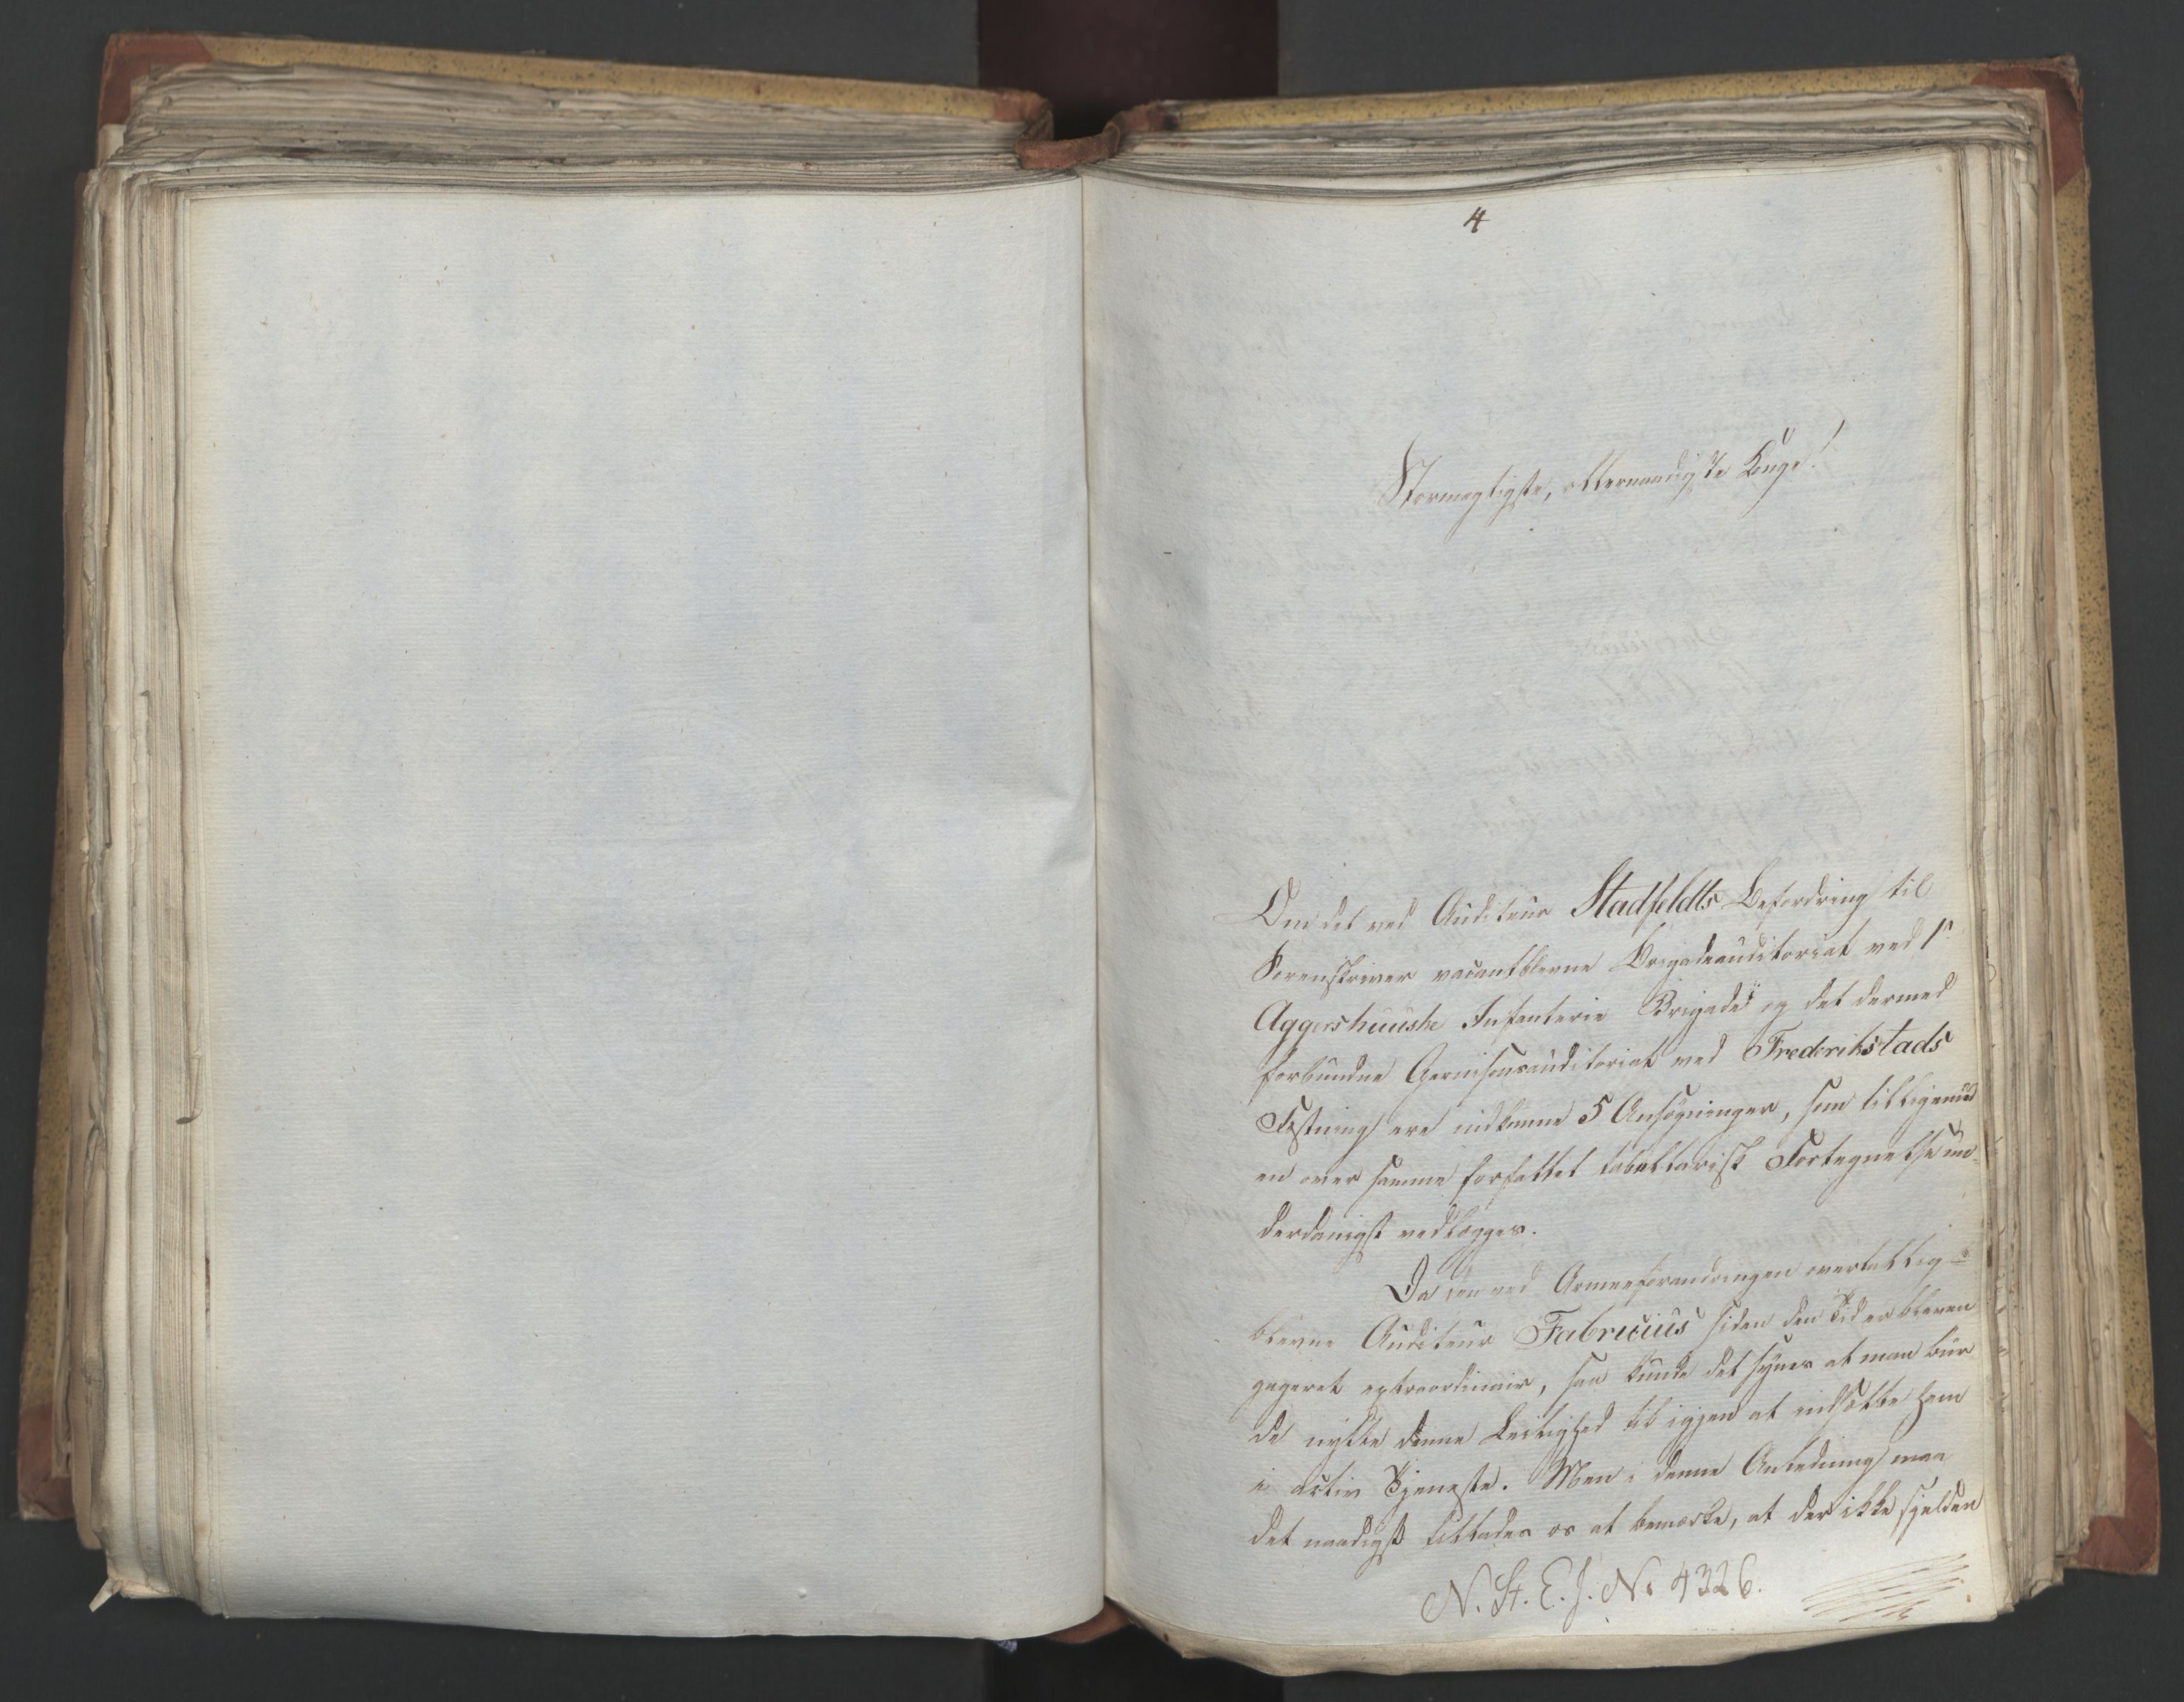 4
Stormægtigste, allernaadigste Konge!
Om det ved Auditeur Stadfeldts Befordring til
Sorenskriver vacantblevne Brigadeauditoriat ved 1ste
Aggershuuske Infanterie Brigade og det dermed
forbundne Garnisonsauditoriat ved Frederikstads
Fæstning ere indkomne 5 Ansøgninger, som tilligemed
en over samme forfattet tabellarisk Fortegnelse un-
derdanigst vedlægges.
Da den ved Armeeforandringen overtallig-
blevne Auditeur Fabricius siden den Tid er bleven
gageret extraordinair, saa kunde det synes at man bur
de nytte denne Leilighed til igjen at indsætte ham
i activ Tjeneste. Men i denne Anledning maa
det naadigst tillades os at bemærke, at der ikke sjelden
N. St. E. J. No 4326.